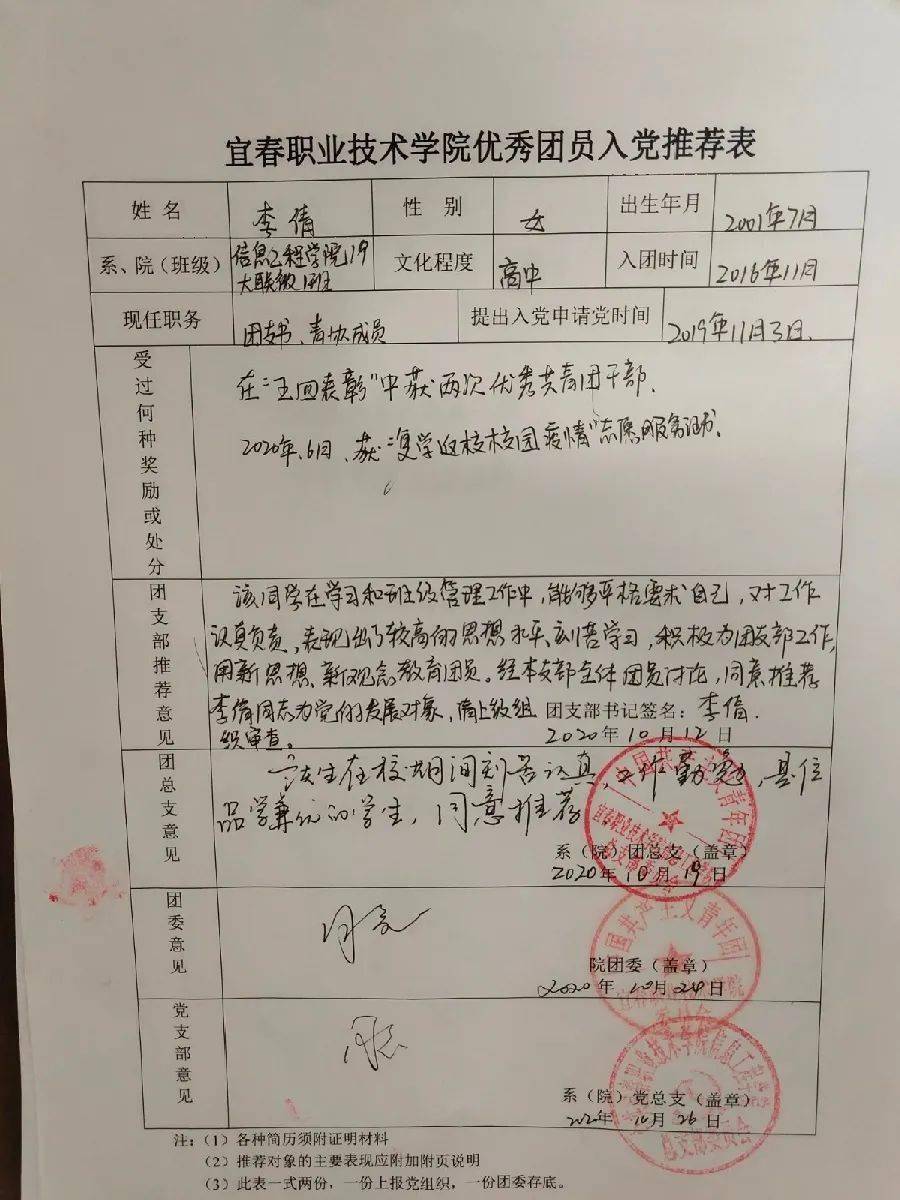 宜春职业技术学院优秀团员入党推荐表
姓名 李倩 性别 女 出生年月 2001年7月
系、院（班级） 信息工程学院19大联数1班 文化程度 高中 入团时间 2016年11月
现任职务 团支书、青协成员 提出入党申请党时间 2019年11月3日.
受过何种奖励或处分
在"五四表彰"中获两次优秀共青团干部.
2020年.6月、获"复学返校校园疫情"志愿服务证书.
团支部推荐意见
该同学在学习和班级管理工作中，能够严格要求自己，对工作
认真负责，表现出了较高的思想水平、刻苦学习，积极为团支部工作，
用新思想、新观念教育团员。经本支部全体团员讨论，同意推荐
李倩同志为党的发展对象，请上级组 团支部书记签名：李倩.
织审查。 2020年10月12日
团总支意见
该生在校期间刻苦认真，工作勤勉，是位
品学兼优的学生，同意推荐
系（院）团总支（盖章）
2020年10月19日
中国共产主义青年团
团委意见
同意
院团委（盖章）
2020年10月24日
中国共产主义青年团
宜春职业技术学院
委员会
党支部意见
同意
系（院）党总支（盖章）
2020年10月26日
职业技术学院信息工程
总支部委员会
注：（1）各种简历须附证明材料
（2）推荐对象的主要表现应附加附页说明
（3）此表一式两份，一份上报党组织，一份团委存底。